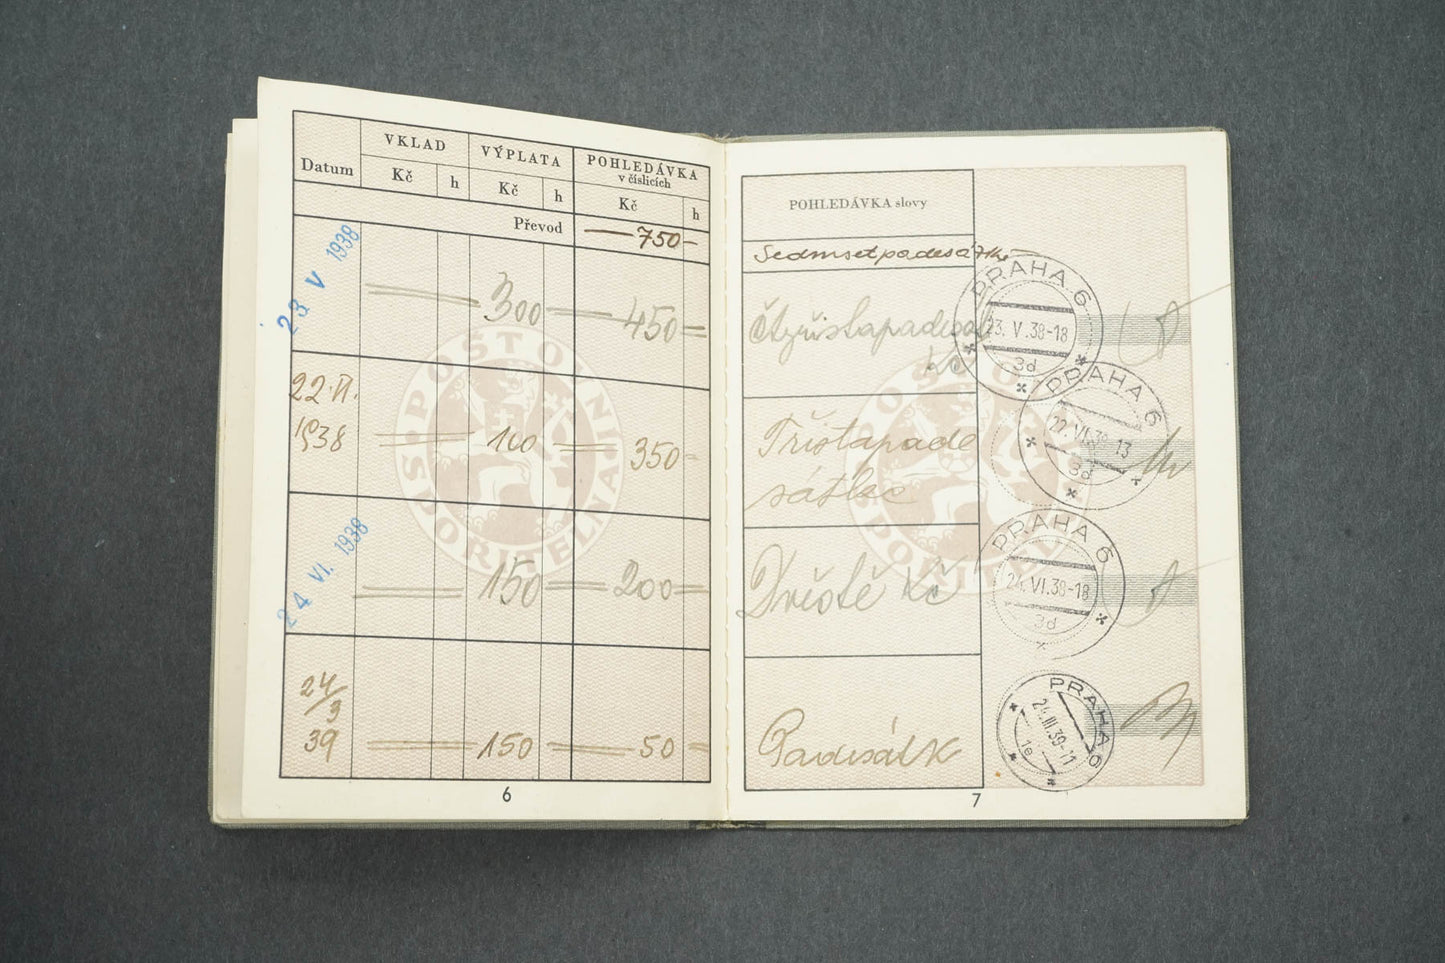 Datum VKLAD VÝPLATA POHLEDÁVKA
v číslicích
Kč h Kč h Kč h
Převod 750
23 V 1938 300 450
22. VI.
1938 100 350
24 VI. 1938 150 200
24/3
39 150 50
POŠTOVNÍ SPOŘITELNA
6
POHLEDÁVKA slovy
Sedmsetpadesát Kč
Čtyřistapadesát
Kč
Třistapade
sátkč
Dvěstě Kč
Padesát K
PRAHA 6
23. V. 38-18
3d
PRAHA 6
22. VI. 38-13
3d
PRAHA 6
24. VI. 38-18
3d
PRAHA 6
24. III. 39-11
1e
7